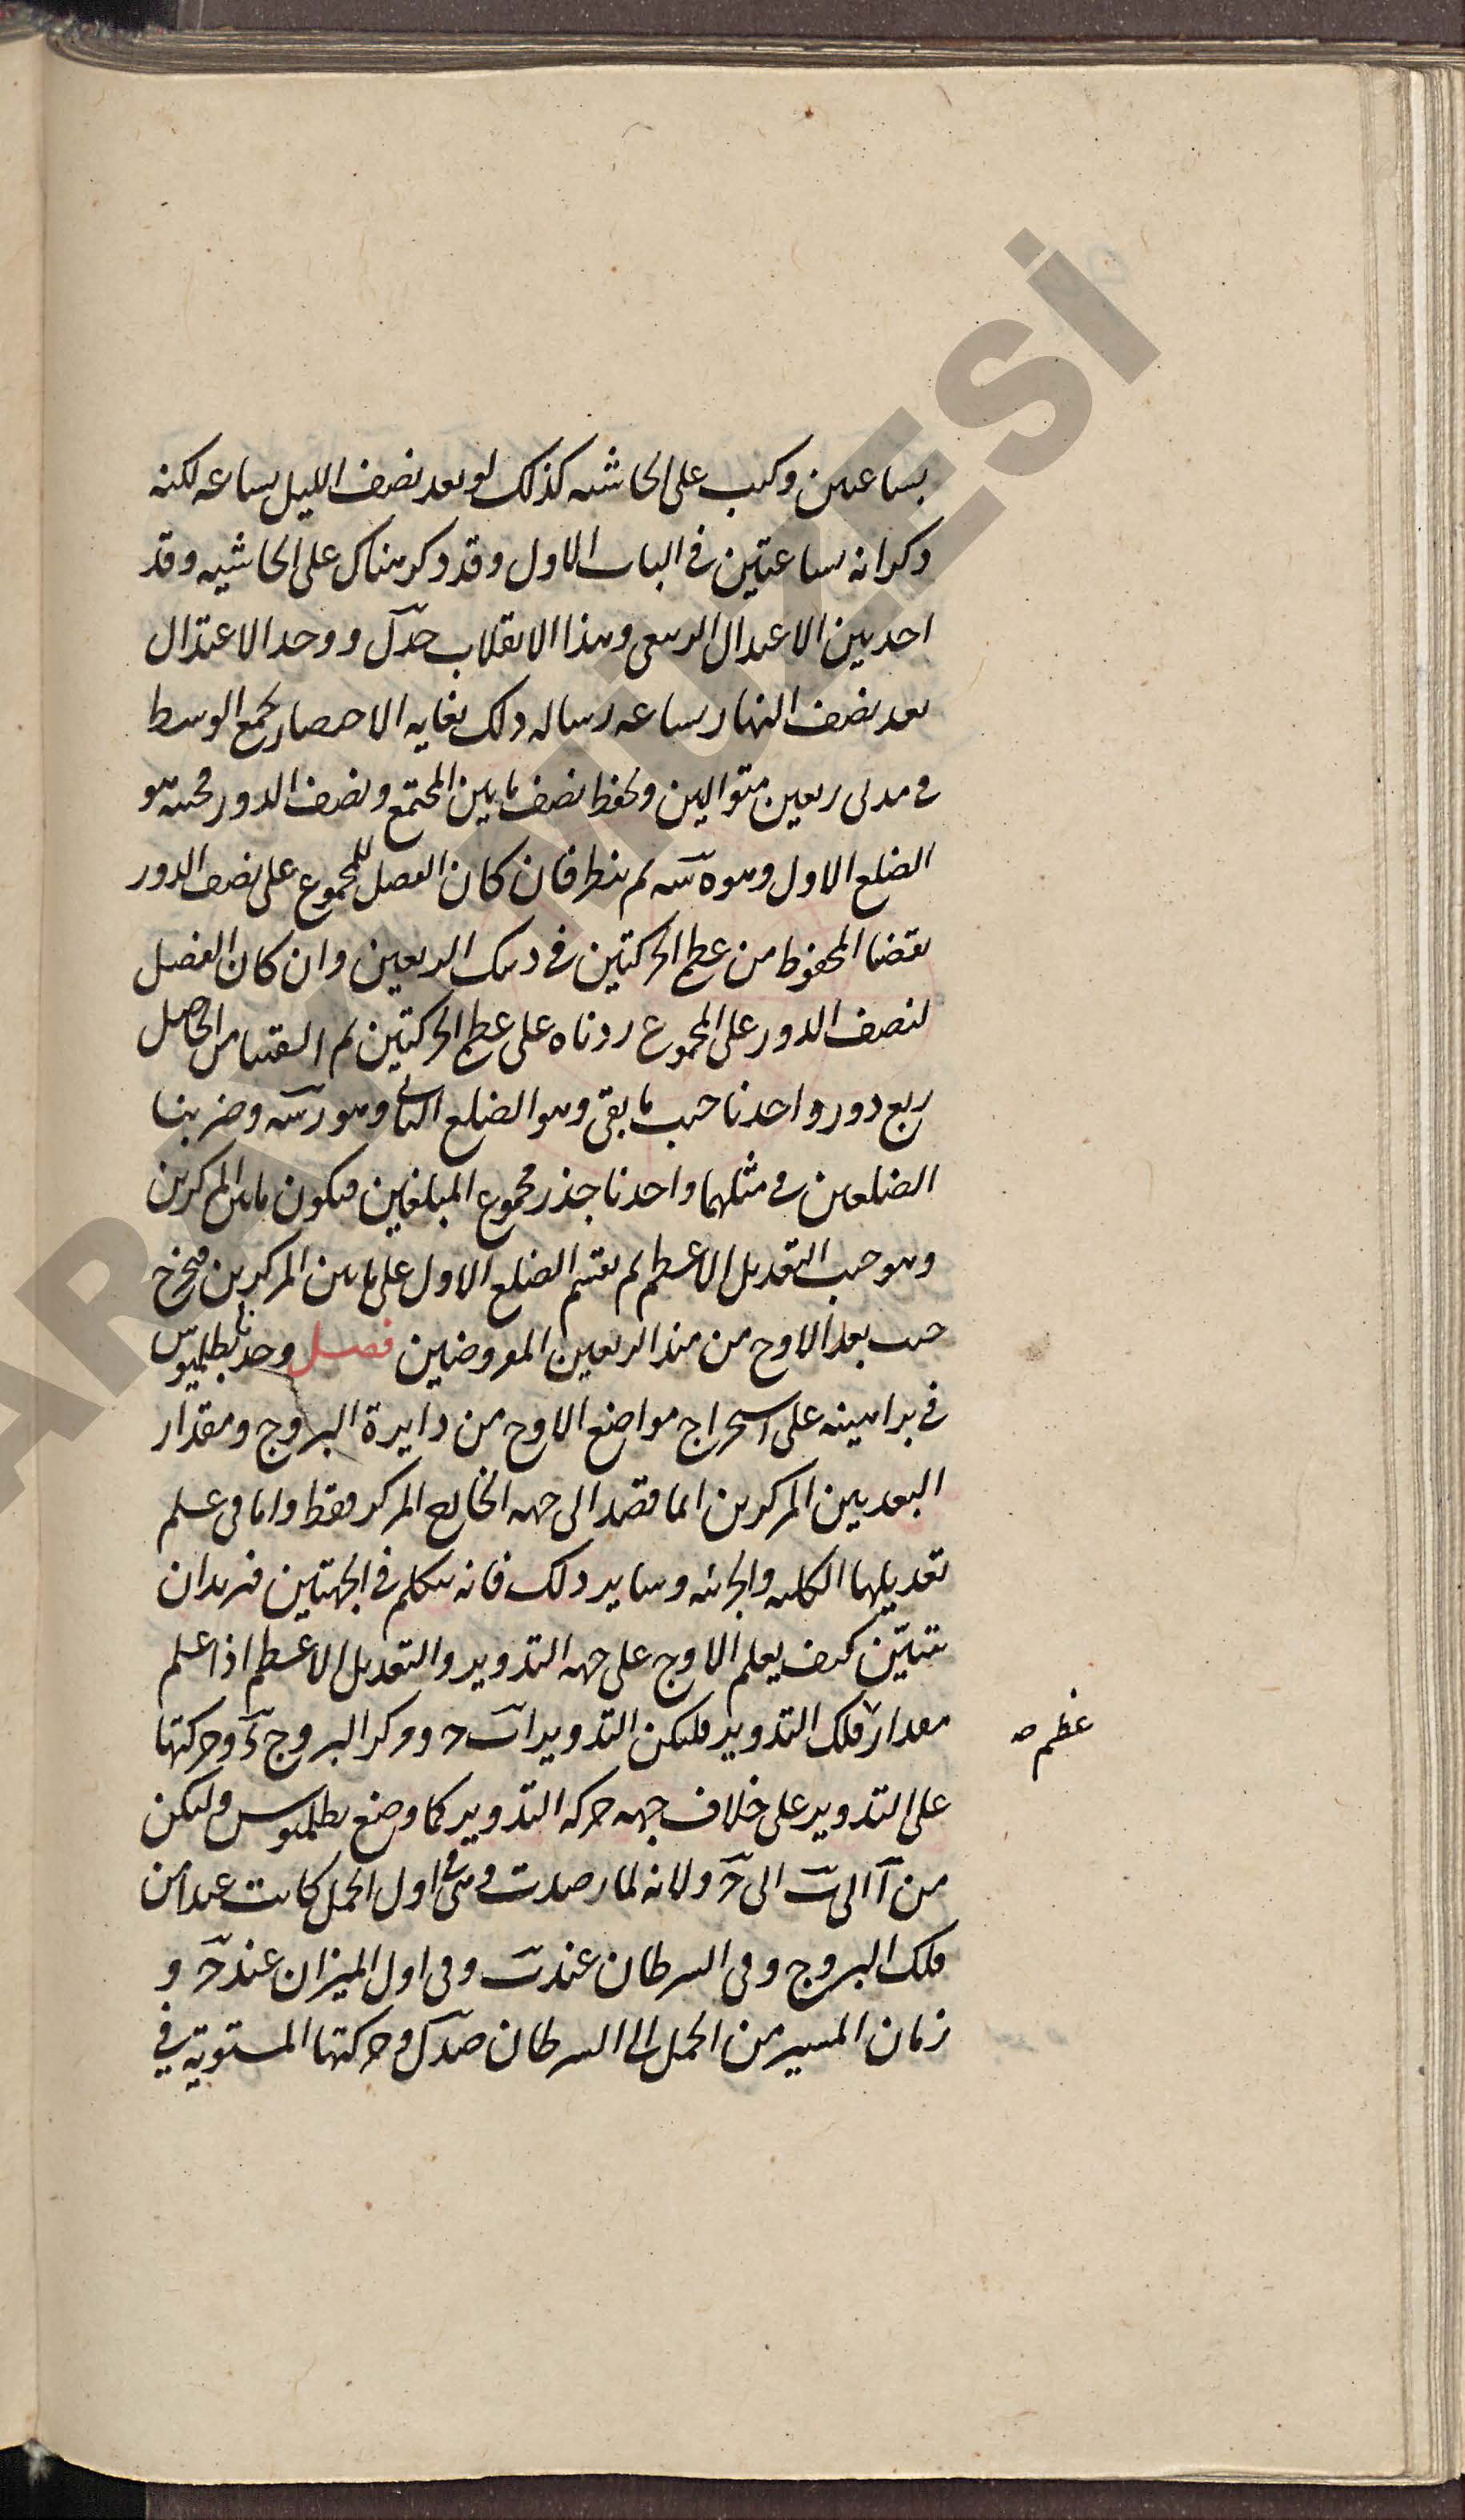 بساعتين وكتب على الحاشيه كذلك لو بعد نصف الليل بساعه لكنه
ذكر انه ساعتين فى الباب الاول وقد ذكر هناك على الحاشيه وقد
اخذ بين الاعتدال الربيعى وهذا الانقلاب صدل ووجد الاعتدال
بعد نصف النهار بساعه رساله ذلك بغايه الاختصار يجمع الوسط
فى مدتى ربعين متواليين ويحفظ نصف ما بين المجتمع ونصف الدور فجيبه هو
الضلع الاول وهو ه سه ثم ننظر فان كان الفضل للمجموع على نصف الدور
نقصنا المحفوظ من عظم الحركتين فى ذينك الربعين وان كان الفضل
لنصف الدور على المجموع زدناه على عظم الحركتين ثم القينا من الحاصل
ربع دور واخذنا جيب ما بقى وهو الضلع الثانى وهو رسه وضربنا
الضلعين فى مثلهما واخذنا جذر مجموع المبلغين فيكون ما بين المركزين
وهو جيب التعديل الاعظم ثم نقسم الضلع الاول على ما بين المركزين فيخرج
جيب بعد الاوج من منذ الربعين المفروضين فصل وجدنا بطلميوس
فى براهينه على استخراج مواضع الاوج من دايرة البروج ومقدار
البعد بين المركزين انما قصد الى جهه الخارج المركز فقط واما فى علم
تعديلها الكليه والجزئيه وساير ذلك فانه يتكلم فى الجهتين فنريد ان
نتبيّن كيف يعلم الاوج على جهه التدوير والتعديل الاعظم اذا علم
مقدار فلك التدوير فليكن التدوير ابح ومركز البروج ء وحركتها
على التدوير على خلاف جهه حركه التدوير كما وضع بطلميوس وليكن
من آ الى ب الى ح ولانه لما رصدت فى اول الحمل كانت عند ا من
فلك البروج وفى السرطان عند ب وفى اول الميزان عند ح و
زمان المسير من الحمل الى السرطان صدل وحركتها المستويه فى
عظم صح